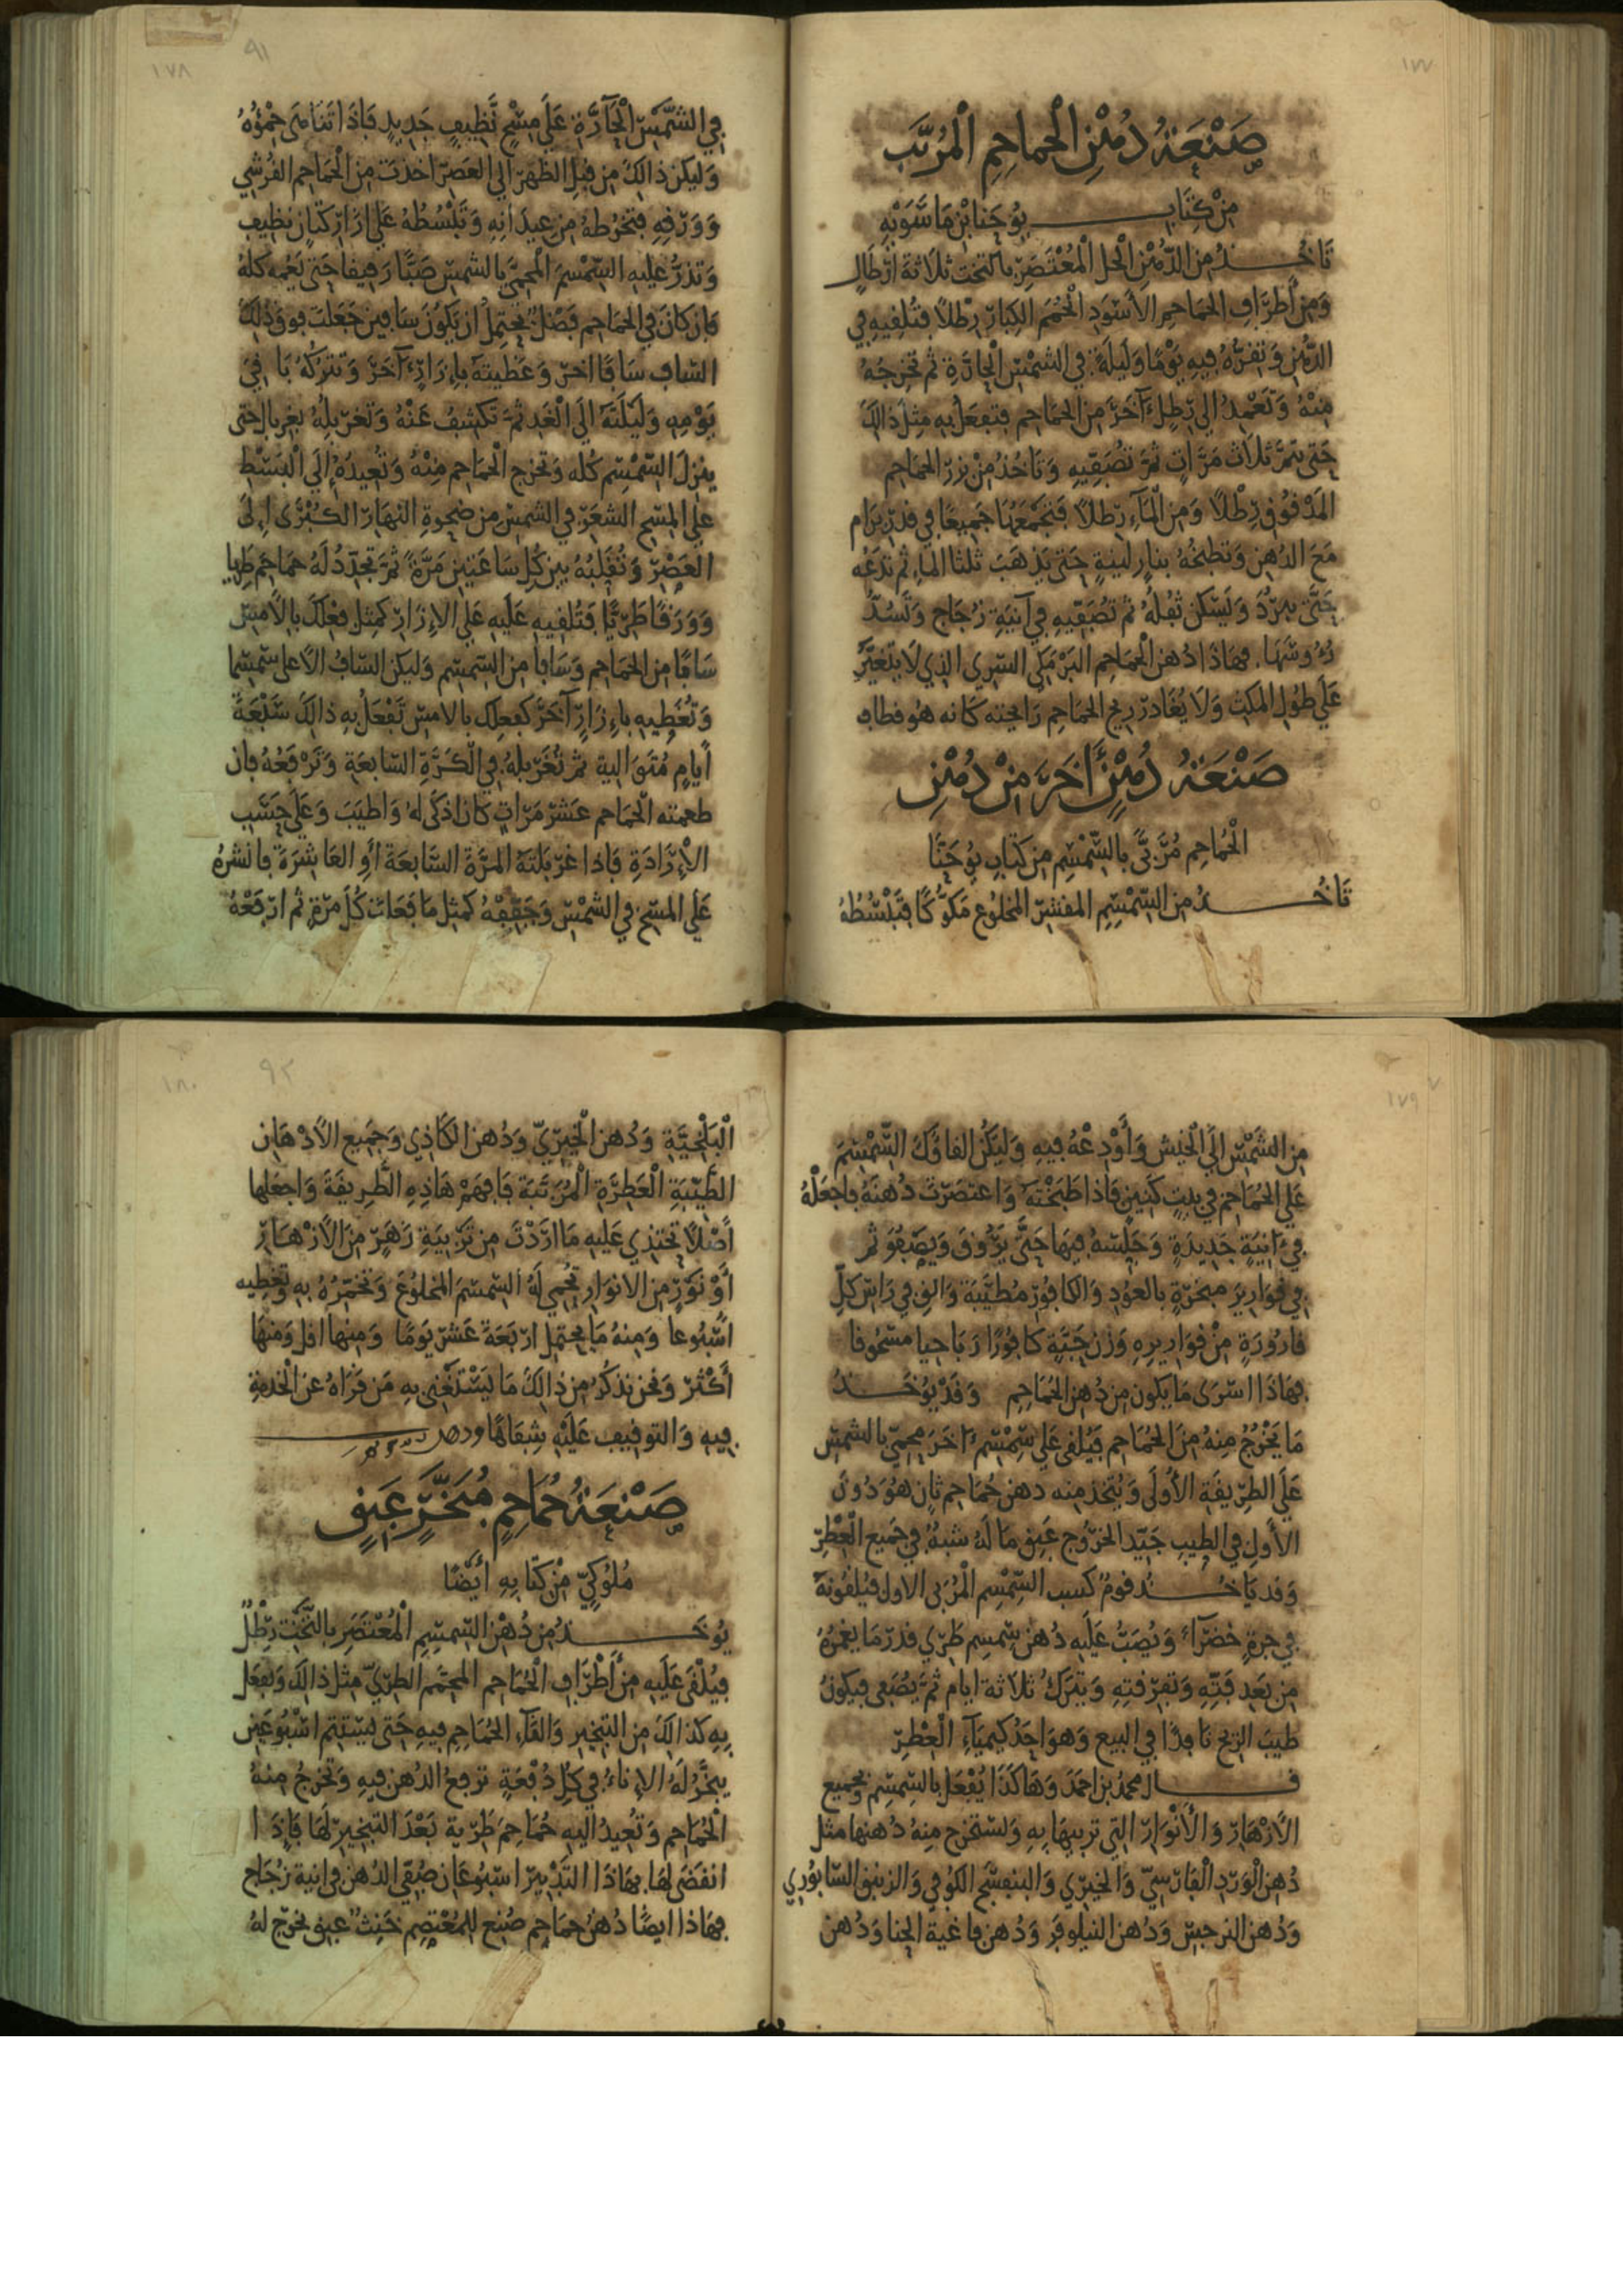 ١٧٧
صَنْعَةُ دُهْنِ الْحماحِمِ الْمُرَبَّب
مِنْ كِتَابِ يُوحَنا بْن مَاسَّوَيْهِ
تَأخُذُ مِنَ الدُّهْنِ الْخل الْمُعْتَصَرِ بالتخت ثلاثة ارْطَالٍ
وَمِنْ أَطرَافِ الحَمَاحِمِ الأَسْوَدِ الْحُمَمِ الكِبَارِ رطْلاً فتُلقِيهِ في
الدُّهْنِ وَتفرّهُ فِيهِ يَوْمًا وَلَيلَةً في الشمْسِ الْحَارَّةِ ثُمَّ تخرِجُهُ
مِنْهُ وَتَعْمِدُ الي رَطِلٍ آخَرَ مِنَ الحَمَاحِمِ فتفعَلُ بِهِ مثلَ ذالكَ
حَتى يتمَّ ثلاث مَرَّاتٍ ثمَّ تصَفِّيهِ وَتَأخُذُ مِنْ بزرِ الحمَاحِمِ
المَدْقُوقِ رِطْلاً وَمِنَ الْمَآءِ رطلاً فَتَجْمَعَهُمَا جَمِيعًا في قدْرِ بَرَام
مَعَ الدهِن وَتطبُخُهُ بنارٍ لينةٍ حَتى يَذهَبَ ثلثا الماء ثم تدَعُه
حَتَّى يبرُدَ وَيَسْكنَ ثفلُهُ ثم تصَفّيهِ في آنِيَةِ زُجَاجٍ وَتَسُدُّ
رُءُوسَهَا. فهَاذَا دُهنُ الْحَمَاحِمِ البَرْمَكي السِّري الذي لاَ يتغيَّرُ
عَلَي طولِ المكثِ وَلاَ يُغَادِرُ ريحَ الحمَاحِمِ رَائحته كَانه هو قطاف
صَنْعَةُ دُهْنٍ أَخَرَ مِنْ دُهْنِ
الْحُمَاحِمِ مُرَّبىً بالسِّمْسِمِ مِن كِتَابِ يُوحَنَّا
تَأخُذُ مِنَ السِّمْسِمِ المقشرِ المخلوعِ مَكّوكًا فَتَبْسُطُهُ
١٧٨ ٩١
فِي الشَّمْسِ الْحَآرَّةِ عَلَي مِسْحٍ نَّظِيفٍ جَدِيدٍ فَاذَا تَنَاهَى حَمْوُهُ
وَليكن ذالكَ مِن قبلِ الظهْرِ الي العَصرِ اخذتَ مِنَ الْحَمَاحِمِ القُرَشِي
وَوَرَقِهِ فتخْرُطهُ مِن عيدَانِهِ وَتَبْسُطُهُ عَلَي ازَارِ كَتَّانٍ نظيفٍ
وَتذرُّ عليهِ السِّمْسِمَ الْمحميَّ بالشمسِ صَبًّا رَقيقا حَتى يَعُمه كلهُ
فان كانَ في الحمَاحِمِ فَضْلٌ يحتمِلُ ان يَكُونَ سَافين جَعلتَ فوقَ ذلك
السَّاف سَافًا اخرَ وَغَطيتَهُ بإِزَارٍ آخَرَ وَتتركُهُ بَاقي
يَوْمِهِ وَلَيْلَتَهُ الَي الْغَدِ ثمَّ تَكشِفُ عَنْهُ وَتغربلُهُ بغربالٍ حَتى
ينزلَ السِّمسِمُ كُلُّه وَتخرج الْحمَاحِمِ مِنْهُ وَتُعِيدُهُ إِلَي الْبَسْطِ
علي المِسْحِ الشعَرِ في الشمسِ مِن ضحوةِ النهَارِ الكُبْرَى إِلَى
العَصْرِ وَتُقَلِّبُهُ بين كُلِ سَاعَتَيْنِ مَرَّةً ثمَّ تجدّدُ لَهُ حمَاحِمَ طَرِيا
وَوَرَقًا طَرِيًّا فَتُلقِيهِ عَلَيهِ عَلَي الإِزَارِ كمثلِ فعْلكَ بالأَمسِ
سَافًا مِنَ الحمَاحِمِ وَسَافا مِنَ السِّمسِمِ وَليكن السَّافُ الأَعلى سِمْسِما
وَتُغَطِيهِ بإِزَارٍ آخَرَ كفعِلكَ بالامسِ تَفْعَلُ بِهِ ذالكَ سَبْعَةَ
أَيامٍ مُتَوَالية ثم تُغَرْبلهُ في الْكَرَّةِ السَّابعَةِ وَتَرْفَعُهُ فان
طعمته الْحمَاحِم عَشرَ مَرَّاتٍ كان اذكَى لهُ وَاطيَبَ وَعَلَى حَسَبِ
الإِرَادَةِ فَاذا غرْبَلتَهُ المرَّةَ السَّابعَةَ أوِ العَاشِرَةَ فانشرهُ
عَلَي المِسْحِ في الشمْسِ وَجَفِّفْهُ كمثل مَا فَعَلتَ كُلَّ مرّةٍ ثم ارْفَعْهُ
١٧٩
مِنَ الشَّمْسِ إِلَي الْخَيْشِ وَأَوْدِعْهُ فِيهِ وَليَكُن القاؤكَ السِّمْسِمَ
عَلَي الحُمَاحِمِ في بيتٍ كَنينٍ فَاذا طَبَخْتَهُ وَاعتَصَرْتَ دُهنَهُ فاجعَلْهُ
في آنِيَةٍ جَدِيدَةٍ وَجَلِّسْهُ فِيهَا حَتَّى يَرُوقَ وَيَصْفُوَ ثم
في قوَارِيرَ مبخرّةٍ بالعودِ وَالكافورِ مُطيَّبَة وَالقِ في رَاسِ كلِّ
قارُورَةٍ مِنْ قوَارِيرِهِ وَزْنَ حَبَّةٍ كافُورًا رَبَاحيا مسحُوقا
فهَاذَا اسْرَى مَا يكون مِن دُهنِ الحُمَاحِمِ وَقدْ يُوخَذُ
مَا يَخْرُجُ مِنهُ مِنَ الْحُمَاحِمِ فَيُلقى عَلَي سِمْسِمٍ آخَرَ محميّ بالشمسِ
عَلَي الطَرِيقَةِ الأُولَى وَيُتخذ مِنه دهن حُمَاحِمٍ ثانٍ هُوَ دُونَ
الأَولِ في الطِيبِ جَيّد الخرُوج عَبِق مَا لَهُ شبهٌ في جَمِيعِ الْعِطْرِ
وَقد يَاخُذُ قومٌ كسب السِّمسِمِ الْمرَبى الاولِ فيُلقُونَهُ
في جرةٍ خَضرَآءَ وَيُصَبُّ عَلَيهِ دُهنُ سِمسِمٍ طَرِي قدرَ مَا يغمرُهُ
مِن بَعدِ فَتِّهِ وَتفرِقتِهِ وَيترَكُ ثلاثة ايامٍ ثمَّ يُصَفى فيكونُ
طيبَ الريحِ نَافِذًا في البيعِ وَهوَ احَدُ كيميَآءِ الْعِطْرِ
قال محمدُ بن احمَدَ وَهَاكَذَا يُفْعَل بالسِّمسِمِ بجميع
الأَزْهَارِ وَالأَنْوَارِ التي تربيهَا بِهِ وَتستخرج مِنهُ دُهنها مثل
دُهن الْوَرْدِ الْفَارِسِيّ وَالخِيرِي وَالبنفسَجِ الكوفي وَالزنبق السَّابُورِي
وَدُهن النرجِسِ وَدُهن النيلوفر وَدُهن فاغية الحِنا وَدُهن
١٨٠ ٩٢
الْبَلْخيَّةِ وَدُهن الْخِيرِيّ وَدُهن الكَاذِي وَجَمِيع الأَدْهَانِ
الطَّيِّبَةِ الْعَطِرَةِ الْمُرَتَبَة فَافهَمْ هَاذِهِ الطَّرِيقَةَ وَاجعَلها
أَصْلاً تحتذِي عَلَيهِ مَا ارَدْتَ مِن تَرْبِيَةِ زَهَرٍ مِنَ الأَزْهَارِ
أَوْ نَوْرٍ مِنَ الانوَارِ تحمي لَهُ السِّمسِمَ المخلوعَ وَتخمّرُهُ بِهِ وَتغطيه
اسْبُوعا وَمِنهُ مَا يحتمِل ارْبَعَةَ عَشرَ يَومًا وَمِنها اقل وَمنهَا
أَكْثَرَ وَنحن نذكُر مِن ذالكَ مَا يَسْتَغْنِي بِهِ مَن قَرَاهُ عن الْخدمةِ
فِيهِ وَالتوفِيق عَلَيْهِ
صَنْعَةُ حُمَاحِمٍ مُبَخَّرٍ عَبِقٍ
مُلُوكِيّ مِنْ كِتَابِهِ أَيْضًا
يُوخَذُ مِن دُهْنِ السِّمسِمِ الْمُعْتَصَرِ بالتَّخْتِ رِطْلٌ
فيُلْقَى عَلَيهِ مِن أَطْرَافِ الْحُمَاحِمِ المحمَّم الطرِيّ مثل ذالكَ وَيفعَل
بِهِ كذالكَ مِنَ التبخِيرِ وَالقَآءِ الْحُمَاحِمِ فِيهِ حَتى يستتم اسْبُوعَينِ
يبَخَّرُ لَهُ الإِناءُ في كُلِ دُفْعَةٍ ترفعُ الدهن فِيهِ وَتخرجُ مِنهُ
الْحُمَاحِم وَتُعِيدُ اليهِ حُمَاحِمَ طَرِية بَعْدَ التبْخِيرِ لَهَا فَإِذَا
انقضَى لهَا بهَاذَا التَدْبِيرِ اسْبُوعَانِ صُفّي الدُهن في انية زُجَاجٍ
فهَاذا ايضًا دُهنُ حمَاحِمٍ صُنِع للمُعْتَصِمِ خَنِثٌ عَبِق نخرج لهُ